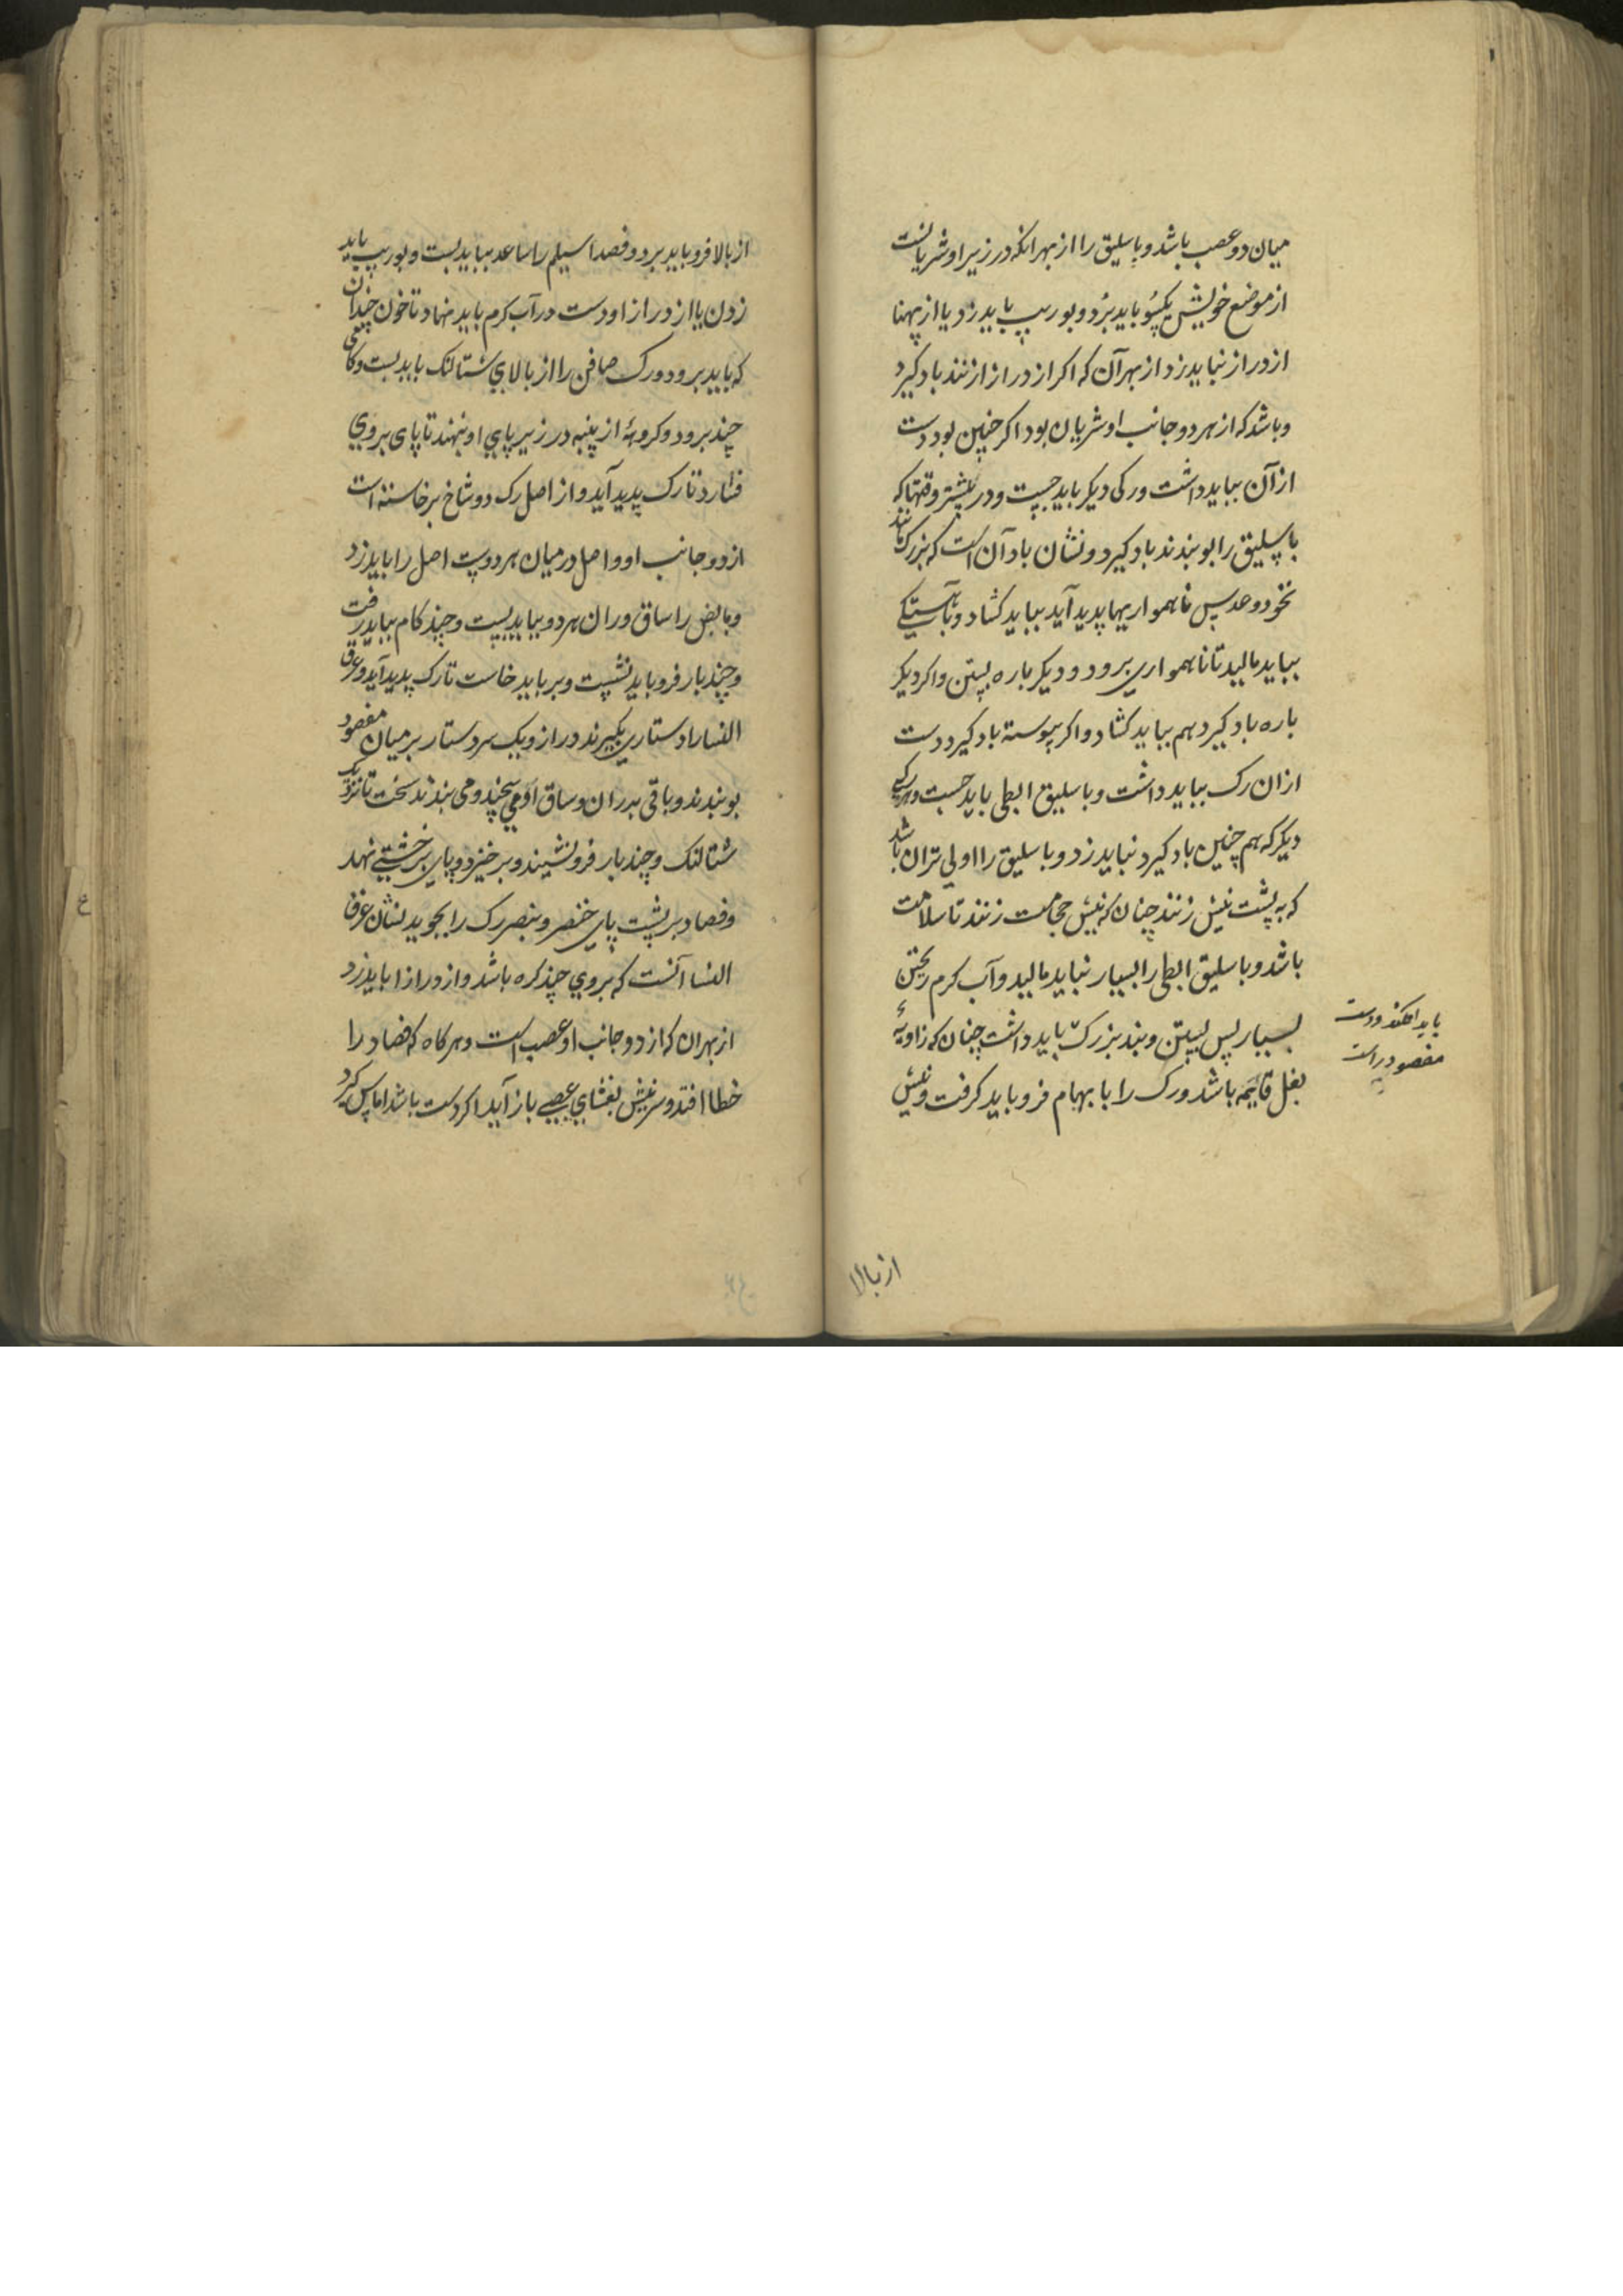 میان دو عصب باشد و باسلیق را از بهر انکه در زیر او شریانست
از موضع خویش یکسو باید برد و بوریب باید زد یا از پهنا
از دراز نباید زد از بهر آن که اکر از دراز زنند باد کیرد
و باشد که از هر دو جانب او شریان بود اکر چنین بود دست
از آن بباید داشت و رکی دیکر باید جست و در بیشتر وقتها که
باسلیق را بو بندند باد کیرد و نشان باد آن است که بزرک مانند
نخود و عدس ناهمواریها پدید آید بباید کشاد و بآهستگی
بباید مالید تا ناهمواری برود و دیکر باره بستن و اکر دیکر
باره باد کیرد هم بباید کشاد و اکر پیوسته باد کیرد دست
از ان رک بباید داشت و باسلیق ابطی باید جست و هر رکی
دیکر که هم چنین باد کیرد نباید زد و باسلیق را اولی تر ان باشد
که به پشت نیش زنند چنان که نیش حجامت زنند تا سلامت
باشد و باسلیق ابطی را بسیار نباید مالید و آب کرم ریختن
بسیار پس بستن و بند بزرک باید داشت چنان که زاویهٔ
بغل قایمه باشد و رک را بابهام فرو باید کرفت و نیش
باید افکند و دست
مفصود راست
از بالا
از بالا فرو باید برد و فصد اسیلم را ساعد بباید بست و بوریب باید
زدن یا از دراز او دست در آب کرم باید نهاد تا خون چندان
که باید برود و رک صافن را از بالای شتالنک باید بست و کامی
چند برود و کروهٔ از پنبه در زیر پای او نهند تا پای بروی
فشارد تا رک پدید آید و از اصل رک دو شاخ برخاسته است
از دو جانب او و اصل در میان هر دوست اصل را باید زد
و مابض را ساق و ران هر دو بباید بست و چند کام بباید رفت
و چند بار فرو باید نشست و بر باید خاست تا رک پدید آید و عرق
النسا را دستاری بکیرند دراز و یک سر دستار بر میان مفصود
بو بندند و باقی بدران و ساق او می پیچند و می بندند سخت تا نزدیک
شتالنک و چند بار فرو نشیند و بر خیزد و پای بر خشتی نهد
و فصاد بر پشت پای خنصر و بنصر رک را بجوید نشان عرق
النسا آنست که بروی چند کره باشد و از دراز ا باید زد
از بهر ان که از دو جانب او عصب است و هر کاه که فصاد را
خطا افتد و سر نیش بغشای عصبی باز آید اکر دست باشد اماس کیرد